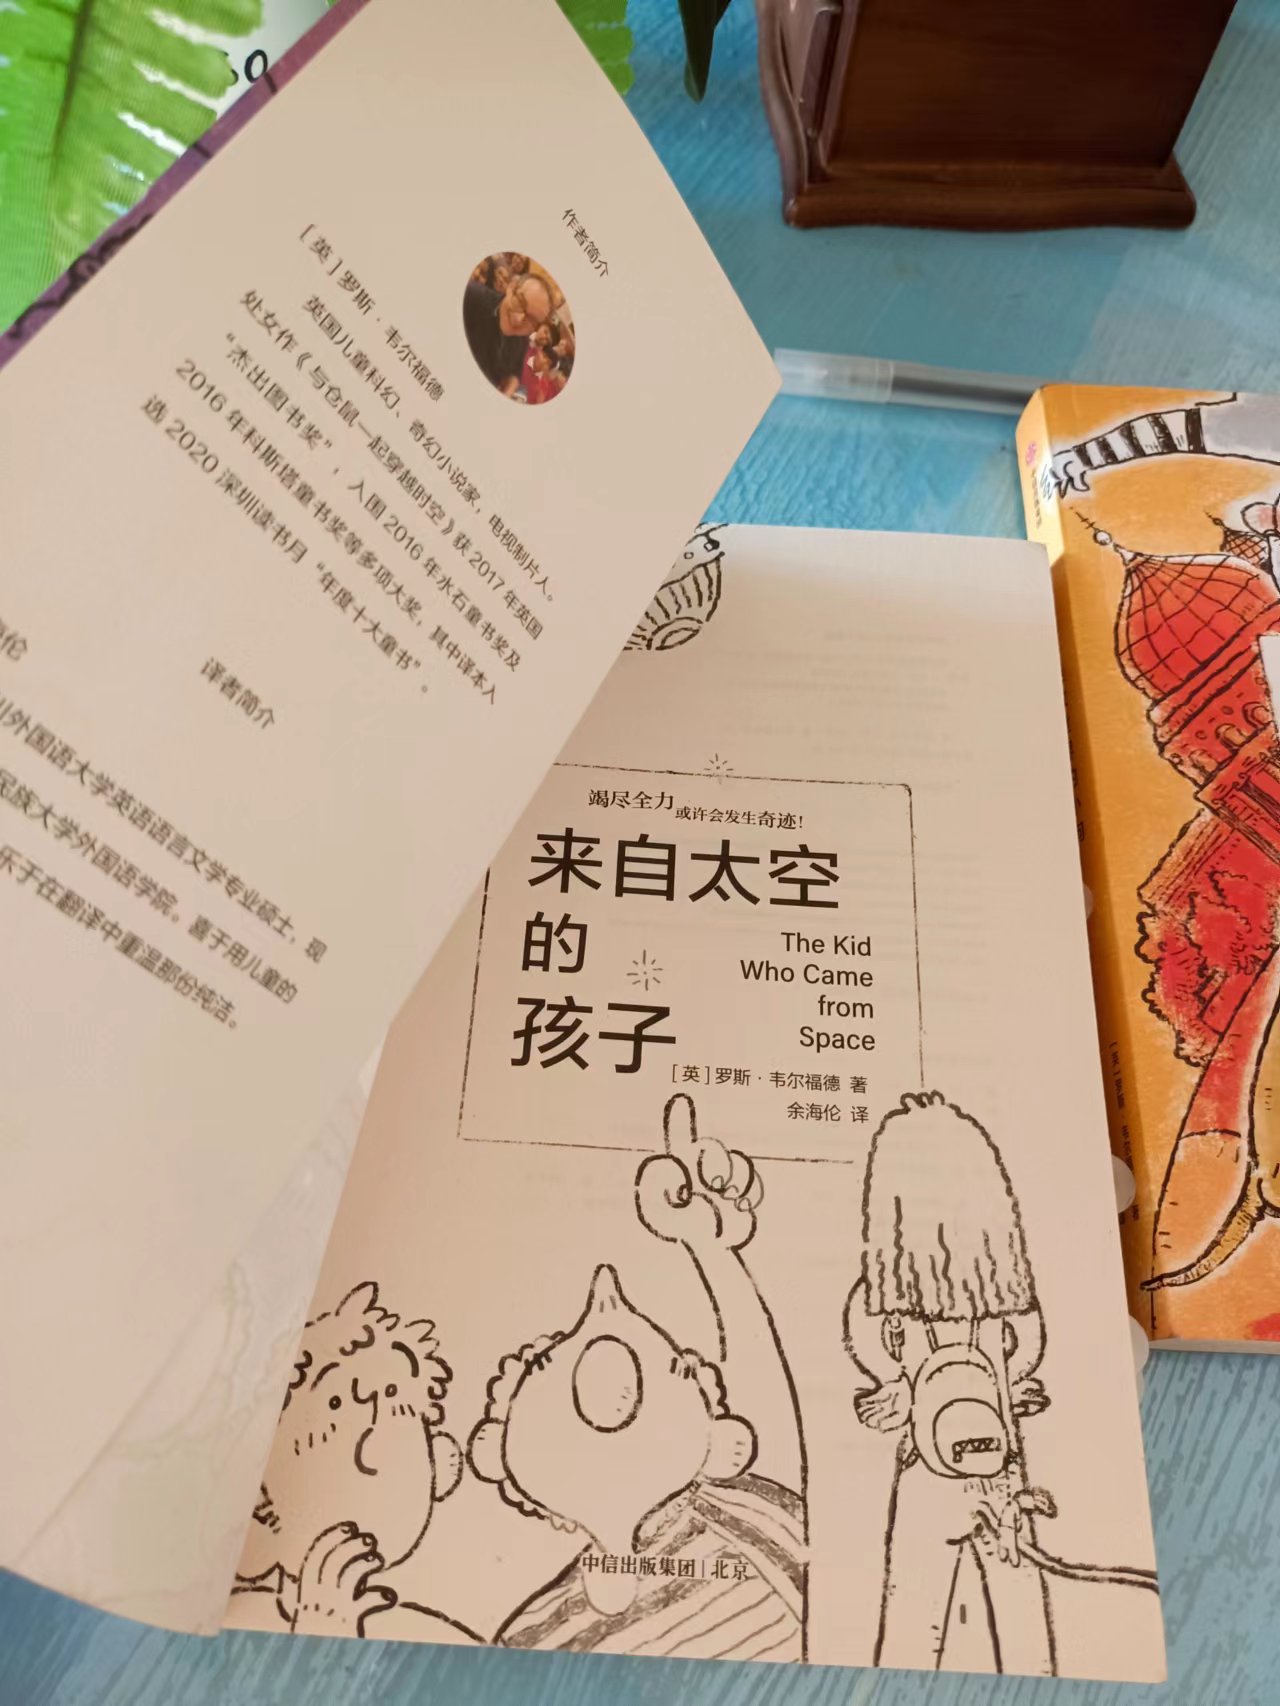 作者简介
[英]罗斯·韦尔福德
英国儿童科幻、奇幻小说家，电视制片人。
处女作《与仓鼠一起穿越时空》获2017年英国
“杰出图书奖”，入围2016年水石童书奖及
2016年科斯塔童书奖等多项大奖，其中译本入
选2020深圳读书月“年度十大童书”。
译者简介
伦
川外国语大学英语语言文学专业硕士，现
民族大学外国语学院。喜于用儿童的
乐于在翻译中重温那份纯洁。
竭尽全力 或许会发生奇迹！
来自太空
的
孩子
The Kid
Who Came
from
Space
[英]罗斯·韦尔福德 著
余海伦 译
中信出版集团 | 北京